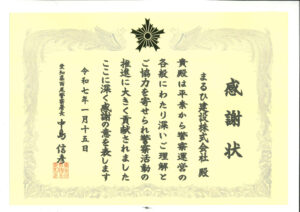 感謝状
まるひ建設株式会社 殿
貴殿は平素から警察運営の
各般にわたり深いご理解と
ご協力を寄せられ警察活動の
推進に大きく貢献されました
ここに深く感謝の意を表します
令和七年一月十五日
愛知県西尾警察署長 中島 信彦